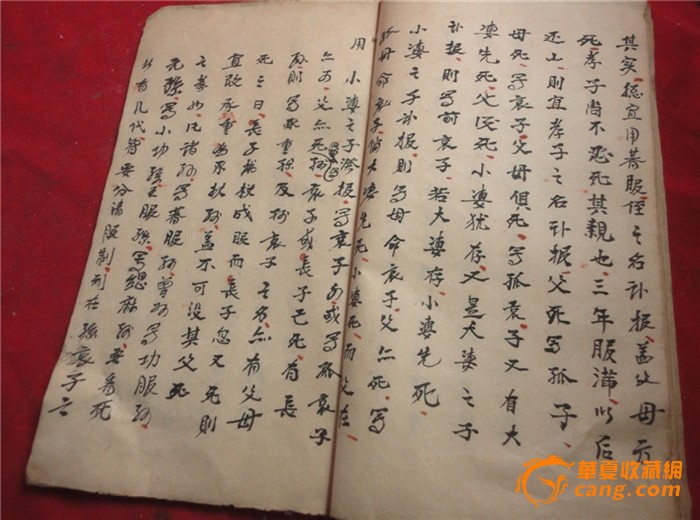 其实总宜用善服侄之名讣报盖父母方
死孝子尚不忍死其親也三年服滿以后
还山则宜孝子之名讣报父死写孤子
母死写哀子父母俱死写孤哀子又有大
婆先死父後死小婆犹存又是大婆之子
讣报则写前哀子若大婆存小婆先死
小婆之子讣报则写母命哀子父亦死写
母命哀子倘大婆先死小婆死而父在
用小婆之子讣报写哀子
亦可父亦死孤哀子或長子已死有長
孫则写承重孫及哀子之名亦有父母
死之日長子扶杖成服而長子忽又死则
宜改承重為承杖孫盖不可没其父
之孝也凡諸孫写善服孫曾孫写功服孫
元孫写小功孫服孫写緦麻孫要看死
者有几代等要分清服制列在孫哀子之
華夏收藏網
cang.com